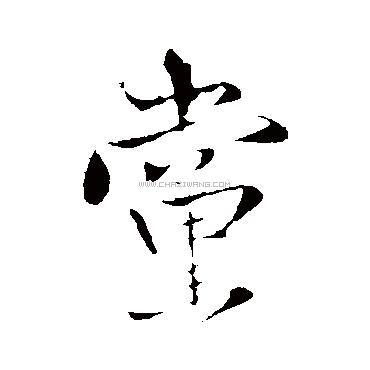 當
WWW.CHAZIWANG.COM